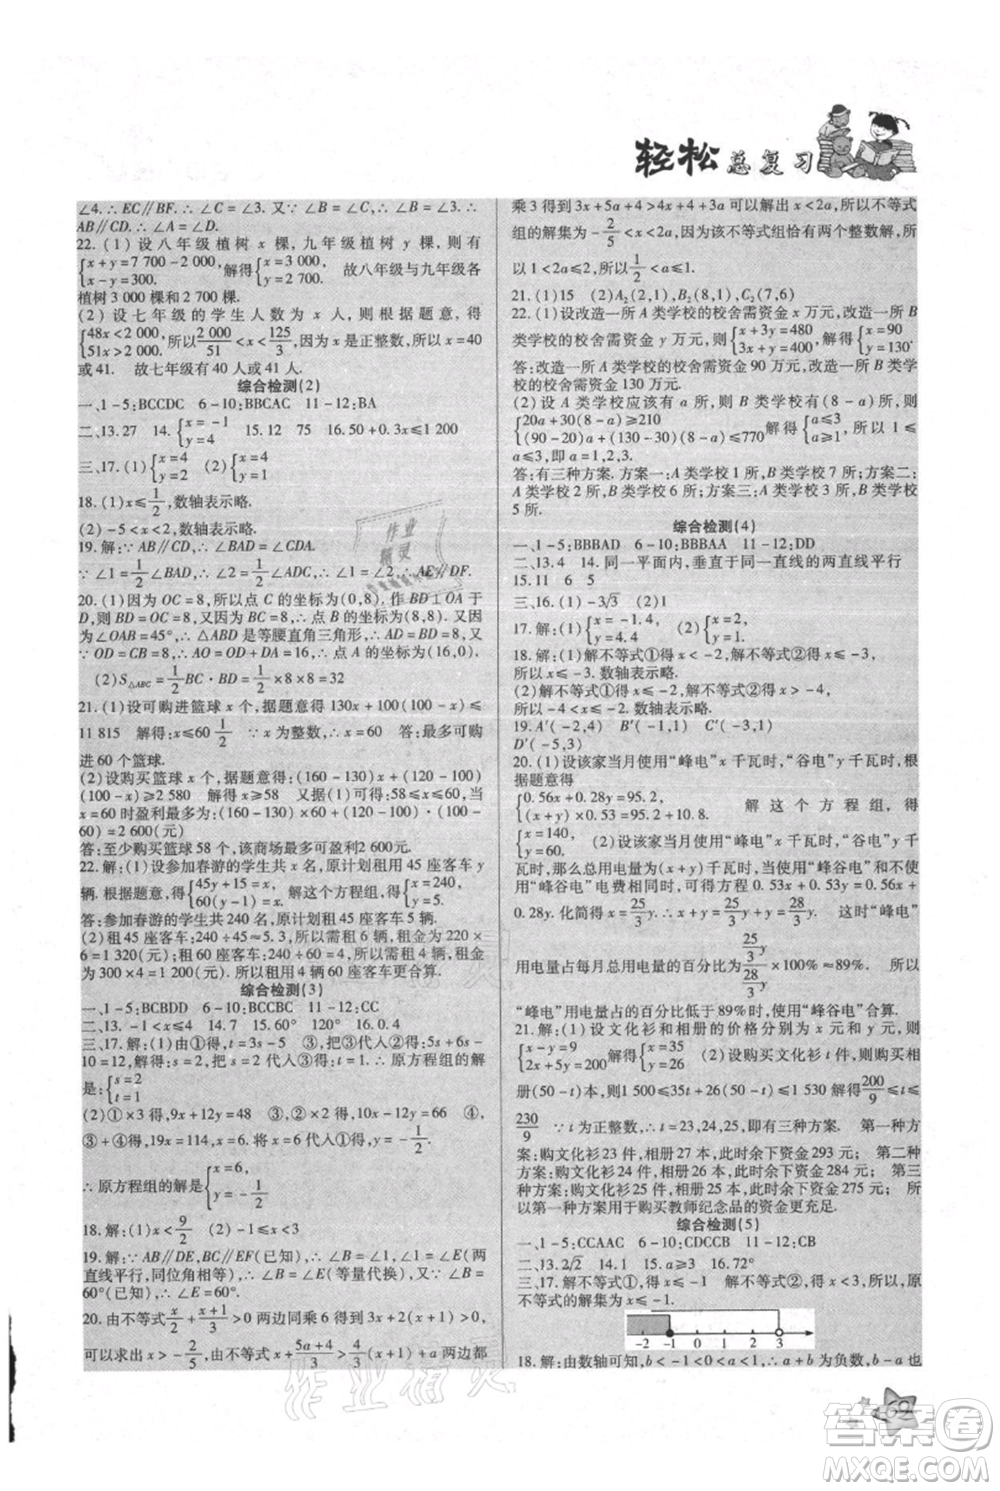 轻松总复习
∠4. ∴ EC∥BF. ∴ ∠C = ∠3. 又∵ ∠B = ∠C, ∴ ∠B = ∠3. ∴
AB∥CD. ∴ ∠A = ∠D.
22. (1) 设八年级植树 x 棵, 九年级植树 y 棵, 则有
{x + y = 7 700 - 2 000, x - y = 300. 解得{x = 3 000, y = 2 700. 故八年级与九年级各
植树 3 000 棵和 2 700 棵.
(2) 设七年级的学生人数为 x 人, 则根据题意, 得
{48x < 2 000, 51x > 2 000. 所以 2 000/51 < x < 125/3. ∵ x 是正整数, 所以 x = 40
或 41. 故七年级有 40 人或 41 人.
综合检测(2)
一、1 - 5: BCCDC 6 - 10: BBCAC 11 - 12: BA
二、13. 27 14. {x = -1, y = 4 15. 12 75 16. 50 + 0.3x ≤ 1 200
三、17. (1){x = 4, y = 2 (2){x = 4, y = 2
18. (1)x ≤ 1/2, 数轴表示略.
(2) -5 < x < 2, 数轴表示略.
19. 解: ∵ AB∥CD, ∴ ∠BAD = ∠CDA.
∵ ∠1 = 1/2∠BAD, ∠2 = 1/2∠CDA, ∴ ∠1 = ∠2, ∴ AE∥DF.
20. (1) 因为 OC = 8, 所以点 C 的坐标为(0,8). 作 BD⊥OA 于
D, 则 BD = OC = 8, ∵ BC = 8, ∴ 点 B 的坐标为(8,8). ∵
∠OAB = 45°, ∴ △ABD 是等腰直角三角形, ∴ AD = BD = 8, 又
∵ OD = CB = 8, ∴ AO = OD + DA = 16, ∴ 点 A 的坐标为(16,0).
(2)S△ABC = 1/2 BC·BD = 1/2 × 8 × 8 = 32
21. (1)设可购进篮球 x 个, 根据题意得 130x + 100(100 - x) ≤
11 815 解得: x ≤ 60 1/2 ∵ x 为整数, ∴ x = 60 答: 最多可购
进 60 个篮球.
(2) 设购买篮球 x 个, 据题意得: (160 - 130)x + (120 -
100)(100 - x) ≥ 2 580 解得 x ≥ 58 ∴ 58 ≤ x ≤ 60, 当 x = 60
时盈利最多为(160 - 130) × 60 + (120 - 100) × (100 -
60) = 2 600(元)
答: 至少购买篮球 58 个, 该商场最多可盈利 2 600 元.
22. 解: (1) 设参加春游的学生共 x 名, 原计划租用 45 座客车 y
辆. 根据题意, 得{45y + 15 = x, 60(y - 1) = x. 解这个方程组, 得{x = 240, y = 5.
答: 参加春游的学生共 240 名, 原计划租用 45 座客车 5 辆.
(2) 租 45 座客车: 240 ÷ 45 ≈ 5.3, 所以需租 6 辆, 租金为 220 ×
6 = 1 320(元); 租 60 座客车: 240 ÷ 60 = 4, 所以需租 4 辆, 租金
为 300 × 4 = 1 200(元). 所以租用 4 辆 60 座客车更合算.
综合检测(3)
一、1 - 5: BCBDD 6 - 10: BCCBC 11 - 12: AD
二、13. -1 < x ≤ 4 14. 7 15. 60° 120° 16. 0.4
三、17. 解: (1)由①得: t = 3s - 5 ③, 把③代入②得: 5s + 6s -
10 = 12, 11s = 22, s = 2. 把 s = 2 代入③得: t = 1. ∴ 原方程组的解
是: {s = 2, t = 1
(2)① × 3 得, 9x + 12y = 48 ③, ② × 2 得, 10x - 12y = 66
④, ③ + ④得, 19x = 114, x = 6 把 x = 6 代入①得, y = -1/2.
∴ 原方程组的解是{x = 6, y = -1/2
18. 解: (1)x < 9/2 (2) -1 ≤ x < 3
19. 解: ∵ AB∥DE, BC∥EF(已知), ∴ ∠1 = ∠B, ∠1 = ∠E(两
直线平行, 同位角相等), ∴ ∠B = ∠E(等量代换), 又 ∵ ∠B =
60°(已知), ∴ ∠E = 60°.
20. 由不等式 x/2 + (x + 1)/3 > 0 两边同乘 6 得到 3x + 2(x + 1) > 0,
可以求出 x > -2/5, 由不等式 x + (5a + 4)/3 > 4/3(x + 1) + a 两边都
乘 3 得到 3x + 5a + 4 > 4x + 4 + 3a 可以解出 x < 2a, 所以不等式
组的解集为 -2/5 < x < 2a, 因为该不等式组有两个整数解, 所
以 1 < 2a ≤ 2, 所以有 1/2 < a ≤ 1.
21. (1)15 (2)A₂(2,1), B₂(8,1), C₂(7,6)
22. (1)设改造一所 A 类学校的校舍需资金 x 万元, 改造一所
B 类学校的校舍需资金 y 万元, 则{x + 3y = 480, 3x + y = 400 解得{x = 90, y = 130.
答: 改造一所 A 类学校的校舍需资金 90 万元, 改造一所 B 类
学校的校舍需资金 130 万元.
(2) 设 A 类学校应该有 a 所, 则 B 类学校有(8 - a) 所, 则
{20a + 30(8 - a) ≥ 210, (90 - 20)a + (130 - 30)(8 - a) ≤ 770 解得{a ≤ 3, a ≥ 1, ∴ 1 ≤ a ≤
3, 即 a = 1,2,3.
答: 有三种方案. 方案一: A 类学校 1 所, B 类学校 7 所; 方案二:
A 类学校 2 所, B 类学校 6 所; 方案三: A 类学校 3 所, B 类学校
5 所.
综合检测(4)
一、1 - 5: BBBAD 6 - 10: BBBAA 11 - 12: DD
二、13. 4 14. 同一平面内, 垂直于同一直线的两直线平行
15. 11 6 5
三、16. (1) -3√3 (2)1
17. 解: (1){x = -1.4, y = 4.4 (2){x = 2, y = 1.
18. 解: (1)解不等式①得 x < -2, 解不等式②得 x ≤ -3,
所以 x ≤ -3. 数轴表示略.
(2) 解不等式①得 x ≤ -2, 解不等式②得 x > -4,
所以 -4 < x ≤ -2. 数轴表示略.
19. A'(-2,4) B'(-1,1) C'(-3,2)
D'(-5,3)
20. (1)设该家当月使用“峰电”x 千瓦时, “谷电”y 千瓦时,
根据题意得
{0.56x + 0.28y = 95.2, (x + y) × 0.53 = 95.2 + 10.8. 解这个方程组, 得
{x = 140, y = 60. (2)设该家当月使用“峰电”x 千瓦时, “谷电”y 千
瓦时, 那么总用电量为(x + y)千瓦时, 当使用“峰谷电”与
不使用“峰谷电”电费相同时, 可得到 0.53(x + y) = 0.56x +
0.28y. 化简得: 0.03x = 0.25y. x = 25/3 y, x + y = 28/3 y 这时“峰电”
用电量占每月总用电量的百分比为 (25/3 y)/(28/3 y) × 100% ≈ 89%. 所以
“峰电”用电量占的百分比低于 89%时, 使用“峰谷电”合算.
21. 解: (1) 设文化衫和相册的价格分别为 x 元和 y 元, 则
{x - y = 9, 2x + 5y = 200 解得{x = 35, y = 26 (2)设购买文化衫 t 件, 则购买相
册(50 - t)本, 则 1 500 ≤ 35t + 26(50 - t) ≤ 1 530 解得 200/9 ≤ t ≤
230/9 ∵ t 为正整数, ∴ t = 23,24,25, 即有三种方案. 第一种方
案: 购文化衫 23 件, 相册 27 本, 此时余下资金 293 元; 第二种
方案: 购文化衫 24 件, 相册 26 本, 此时余下资金 284 元; 第三
种方案: 购文化衫 25 件, 相册 25 本, 此时余下资金 275 元; 所
以第一种方案用于购买教师纪念品的资金更充足.
综合检测(5)
一、1 - 5: CCAAC 6 - 10: CDCCB 11 - 12: CB
二、13. 2√2 14. 1 15. 2 16. 72°
三、17. 解不等式①, 得 x ≤ -1. 解不等式②, 得 x < 3, 所以, 原
不等式的解集为 x ≤ -1.
-2 -1 0 1 2 3
18. 解: 由数轴可知, b < -1 < 0 < a < 1, 所以 a + b 为负数, a - b 也
69
作业精灵
作业精灵
答案圈
MXQE.COM